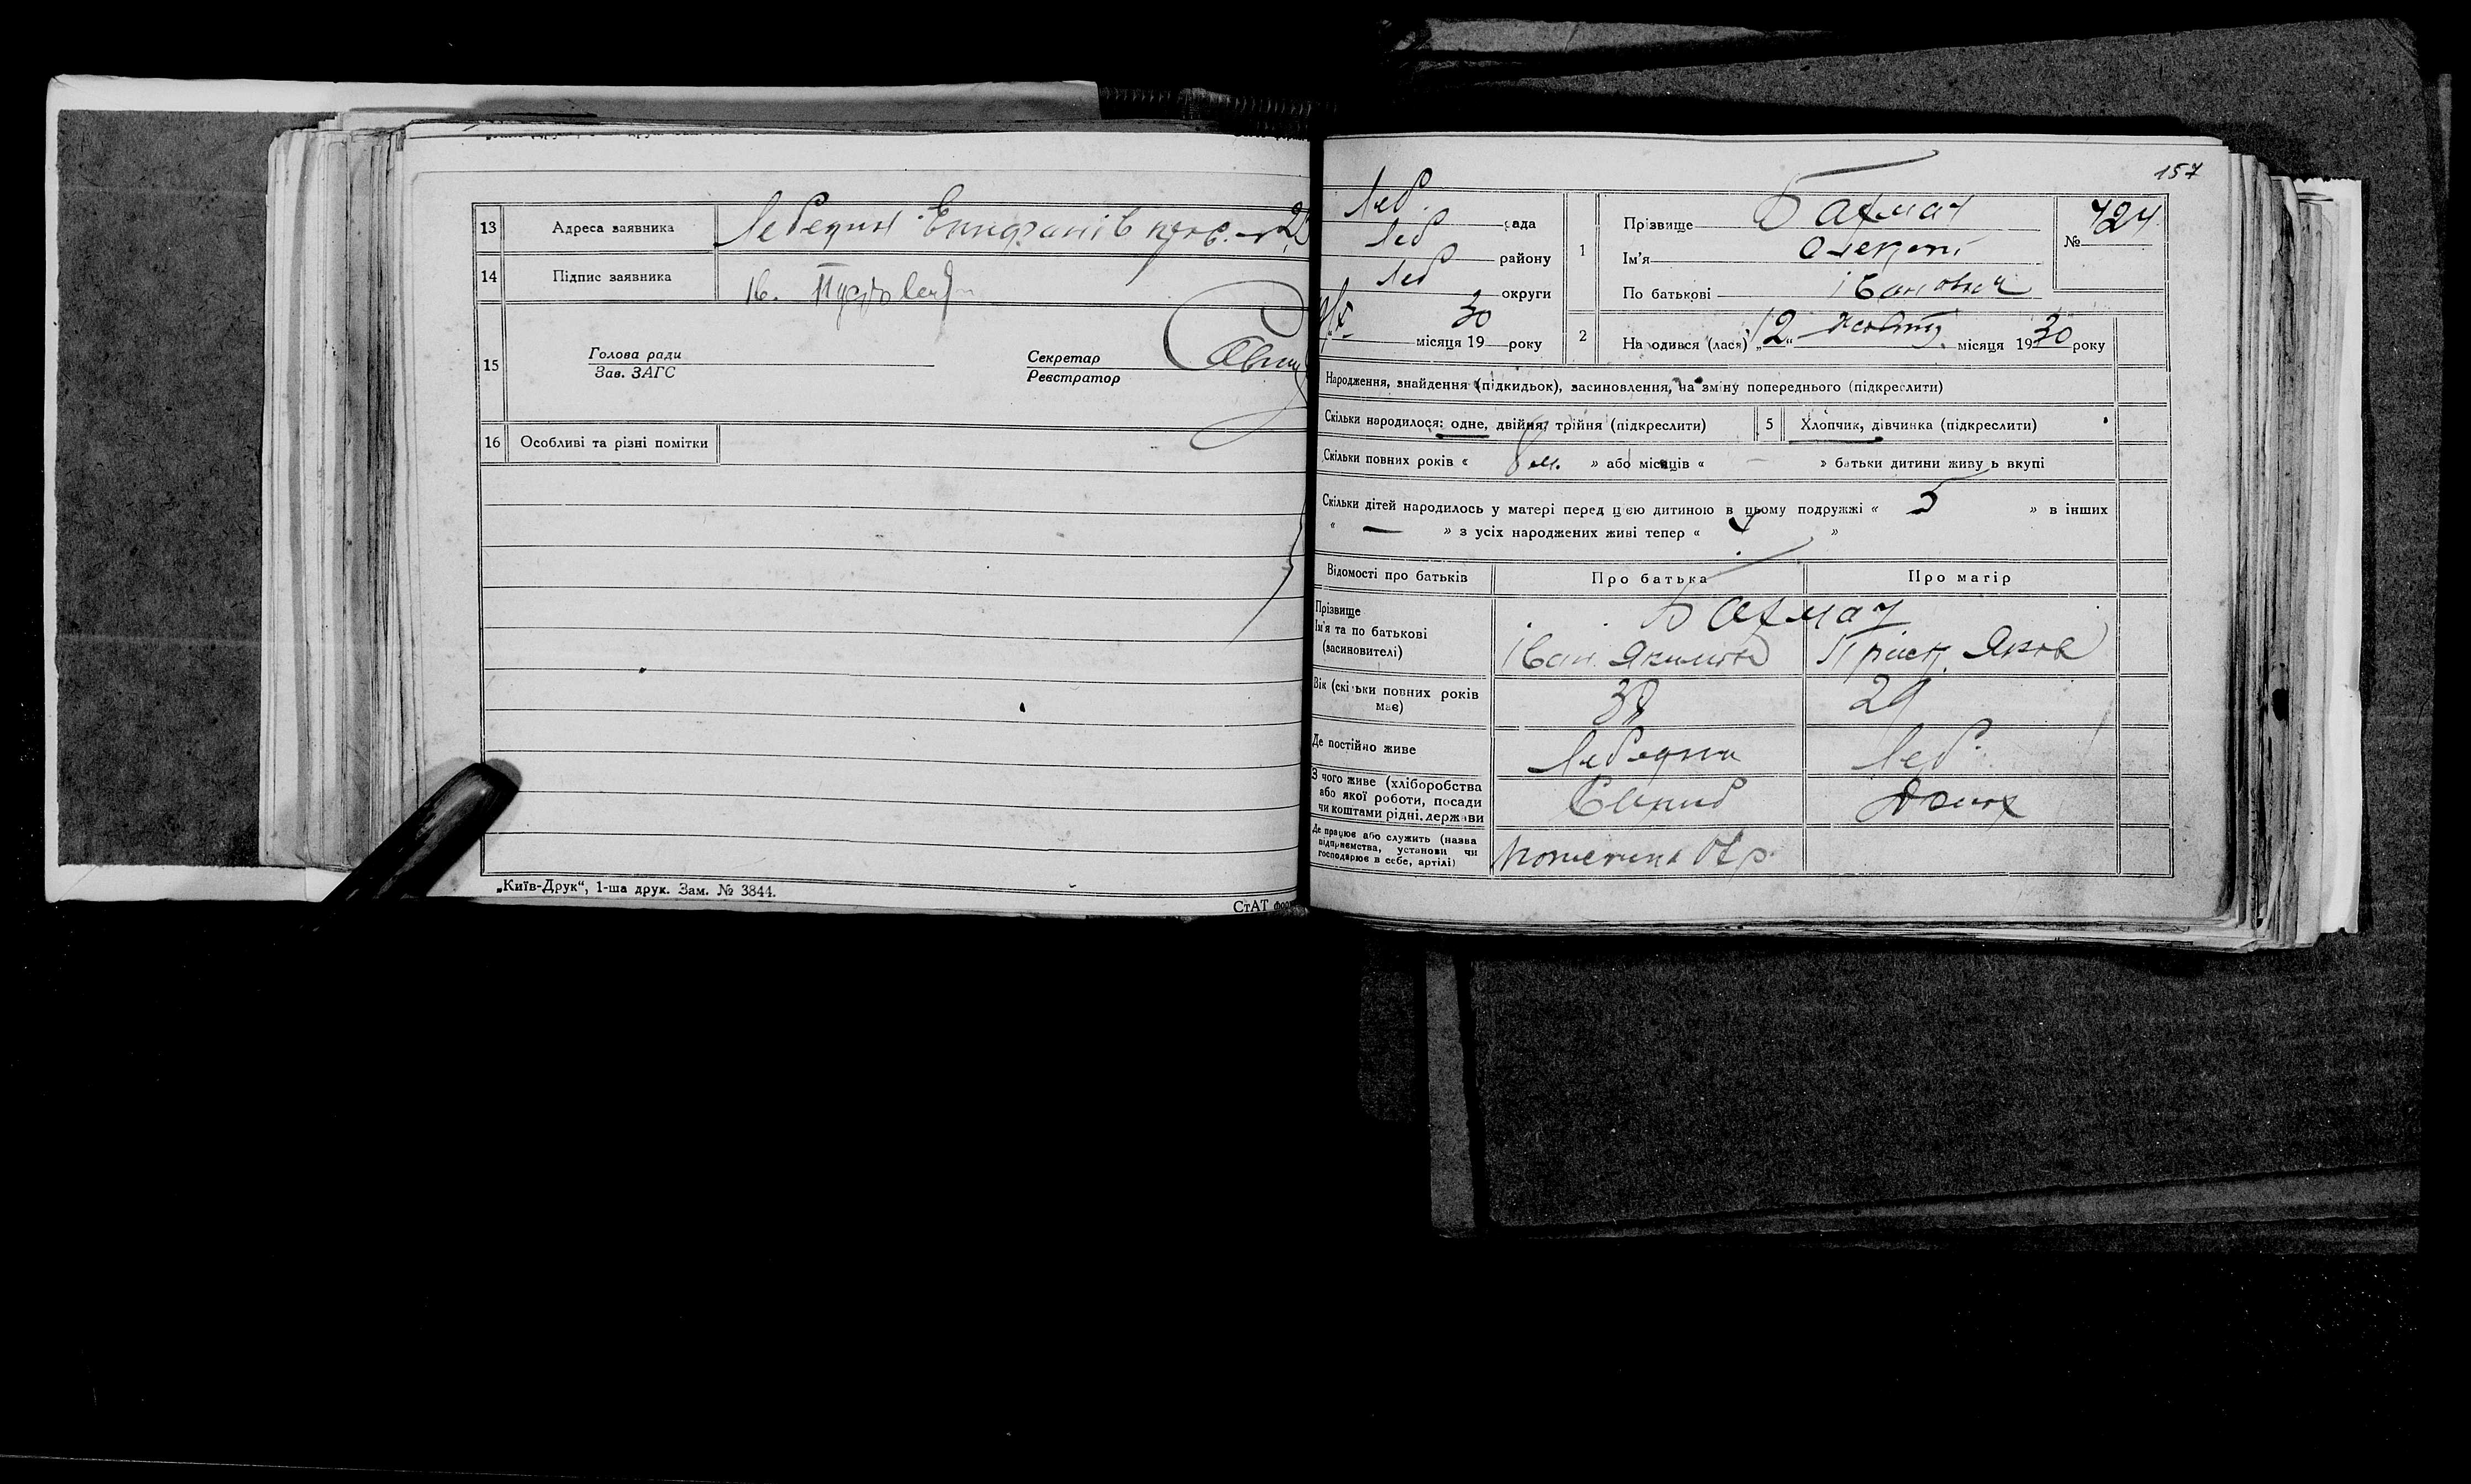 13 Адреса заявника Лебедин Епифанів пров. 2
14 Підпис заявника Ів.
15 Голова ради
Зав. ЗАГС
Секретар
Реєстратор
16 Особливі та різні помітки
„Київ-Друк“, 1-ша друк. Зам. № 3844.
СтАТ
157
Леб. рада
Леб району
Леб округи
30
місяця 19 року
1 Прізвище Бахмач
Ім'я Олексій
По батькові Іванович
№ 724
2 Народився (лася) „12“ жовтня місяця 1930 року
Народження, знайдення (підкидьок), засиновлення, на зміну попереднього (підкреслити)
Скільки народилося: одне, двійня, трійня (підкреслити)
5 Хлопчик, дівчинка (підкреслити)
Скільки повних років « » або місяців « — » батьки дитини живуть вкупі
Скільки дітей народилось у матері перед цією дитиною в цьому подружжі « 5 » в інших
« — » з усіх народжених живі тепер « »
Відомості про батьків Про батька Про матір
Прізвище
Ім'я та по батькові
(засиновителі)
Бахмач
Іван Якимов Приськ. Яков
Вік (скільки повних років має) 38 29
Де постійно живе Лебедин Леб.
З чого живе (хліборобства
або якої роботи, посади
чи коштами рідні, держави
Де працює або служить (назва
підприємства, установи чи
господарює в себе, артілі)